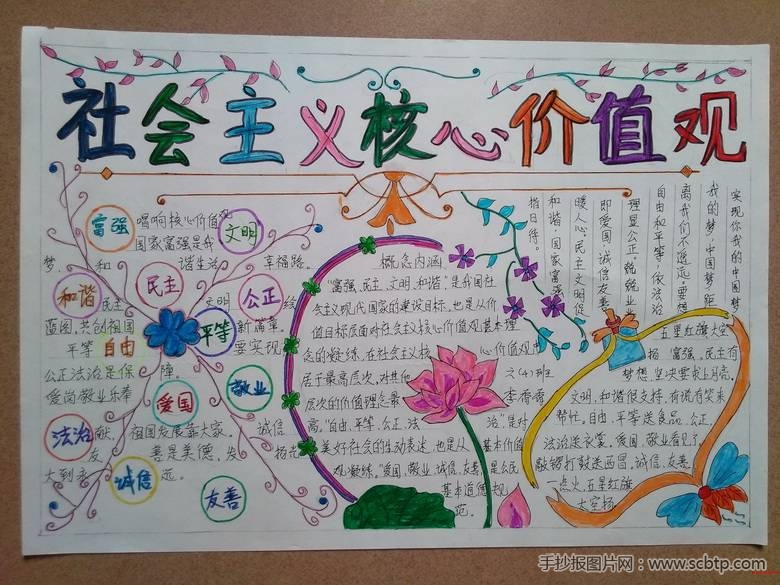 社会主义核心价值观
富强
唱响核心价值观
文明
国家富强是我
梦,和谐生活享福路。
和谐
民主
公正
民主文明绘
蓝图,共创祖国新篇章。
平等
平等自由要实现
公正法治是保障。
爱岗敬业乐奉
敬业
爱国
法治
献,祖国发展靠大家。诚信
友善是美德,发扬光
大到永远。
诚信
友善
概念内涵
“富强、民主、文明、和谐”是我国社
会主义现代国家的建设目标,也是从价
值目标层面对社会主义核心价值观基本理
念的凝练,在社会主义核心价值观中
居于最高层次,对其他
层次的价值理念最
高。“自由、平等、公正、法治”是对
美好社会的生动表述,也是从基本价值
观凝练。“爱国、敬业、诚信、友善”是公民
基本道德规
范。
六(4)班
实现你我的中国梦
我的梦,中国梦,距
离我们不遥远,要想
自由和平等,依法治
理显公正。兢兢业业
即爱国,诚信友善
暖人心,民主文明促
和谐,国家富强
指日待。
五星红旗太空
扬
富强、民主有
梦想,坚决要求上月亮。
文明、和谐很支持,有说有笑来
帮忙。自由、平等送食品,公正、
法治送衣裳。爱国、敬业看见了,
敲锣打鼓送西昌。诚信、友善
一点火,五星红旗
太空扬
手抄报图片网:www.scbtp.com